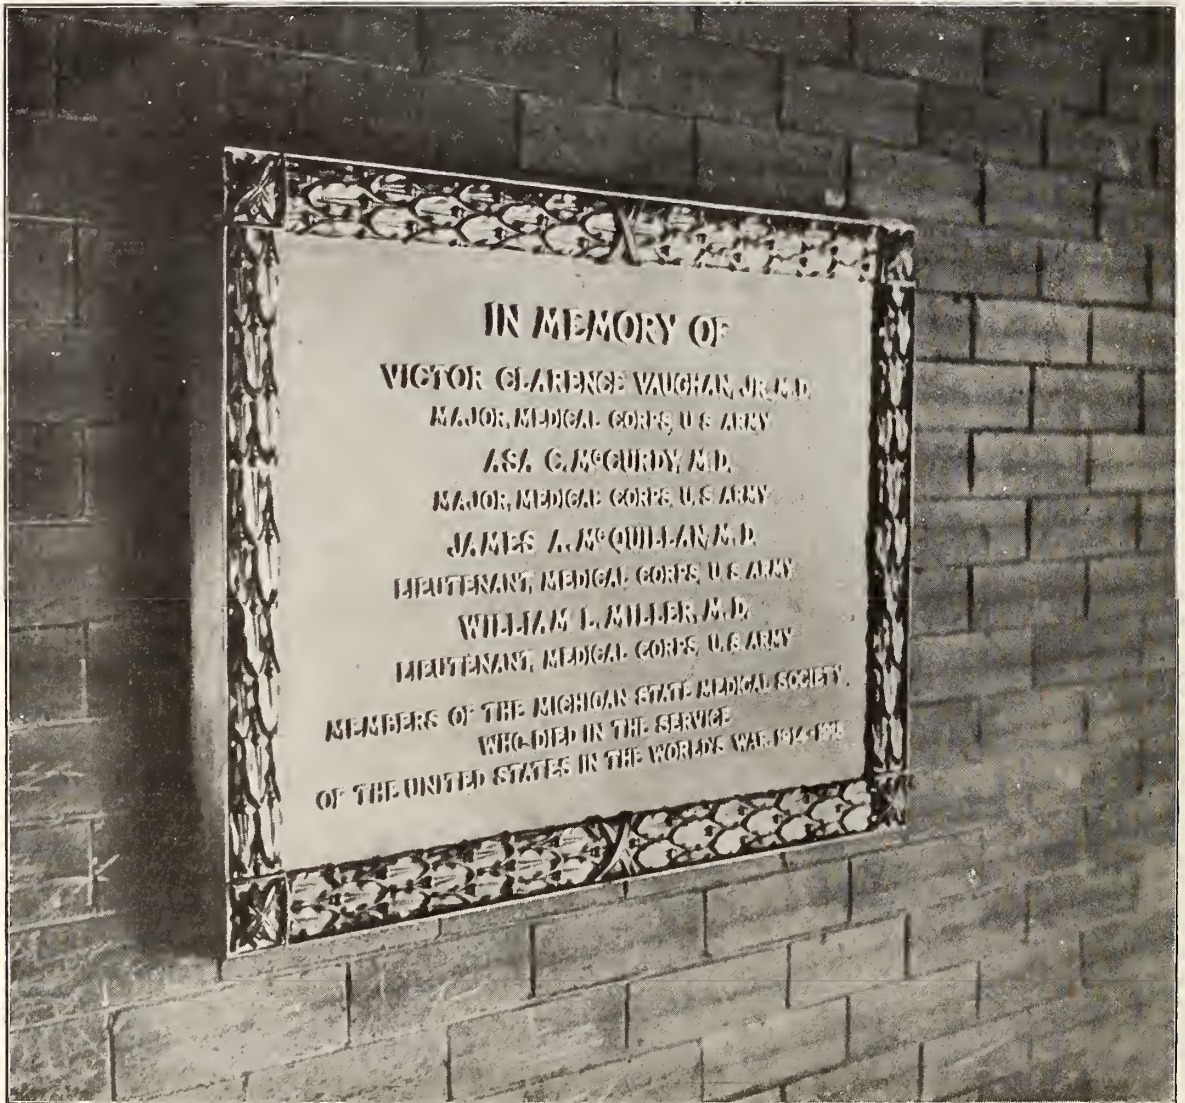 IN MEMORY OF
VICTOR CLARENCE VAUGHAN, JR., M.D.
MAJOR, MEDICAL CORPS, U S ARMY
ASA C. McCURDY, M.D.
MAJOR, MEDICAL CORPS, U.S ARMY
JAMES A. McQUILLAN, M.D.
LIEUTENANT, MEDICAL CORPS, U S ARMY
WILLIAM L. MILLER, M.D.
LIEUTENANT, MEDICAL CORPS, U.S ARMY
MEMBERS OF THE MICHIGAN STATE MEDICAL SOCIETY
WHO DIED IN THE SERVICE
OF THE UNITED STATES IN THE WORLD'S WAR 1914-1918